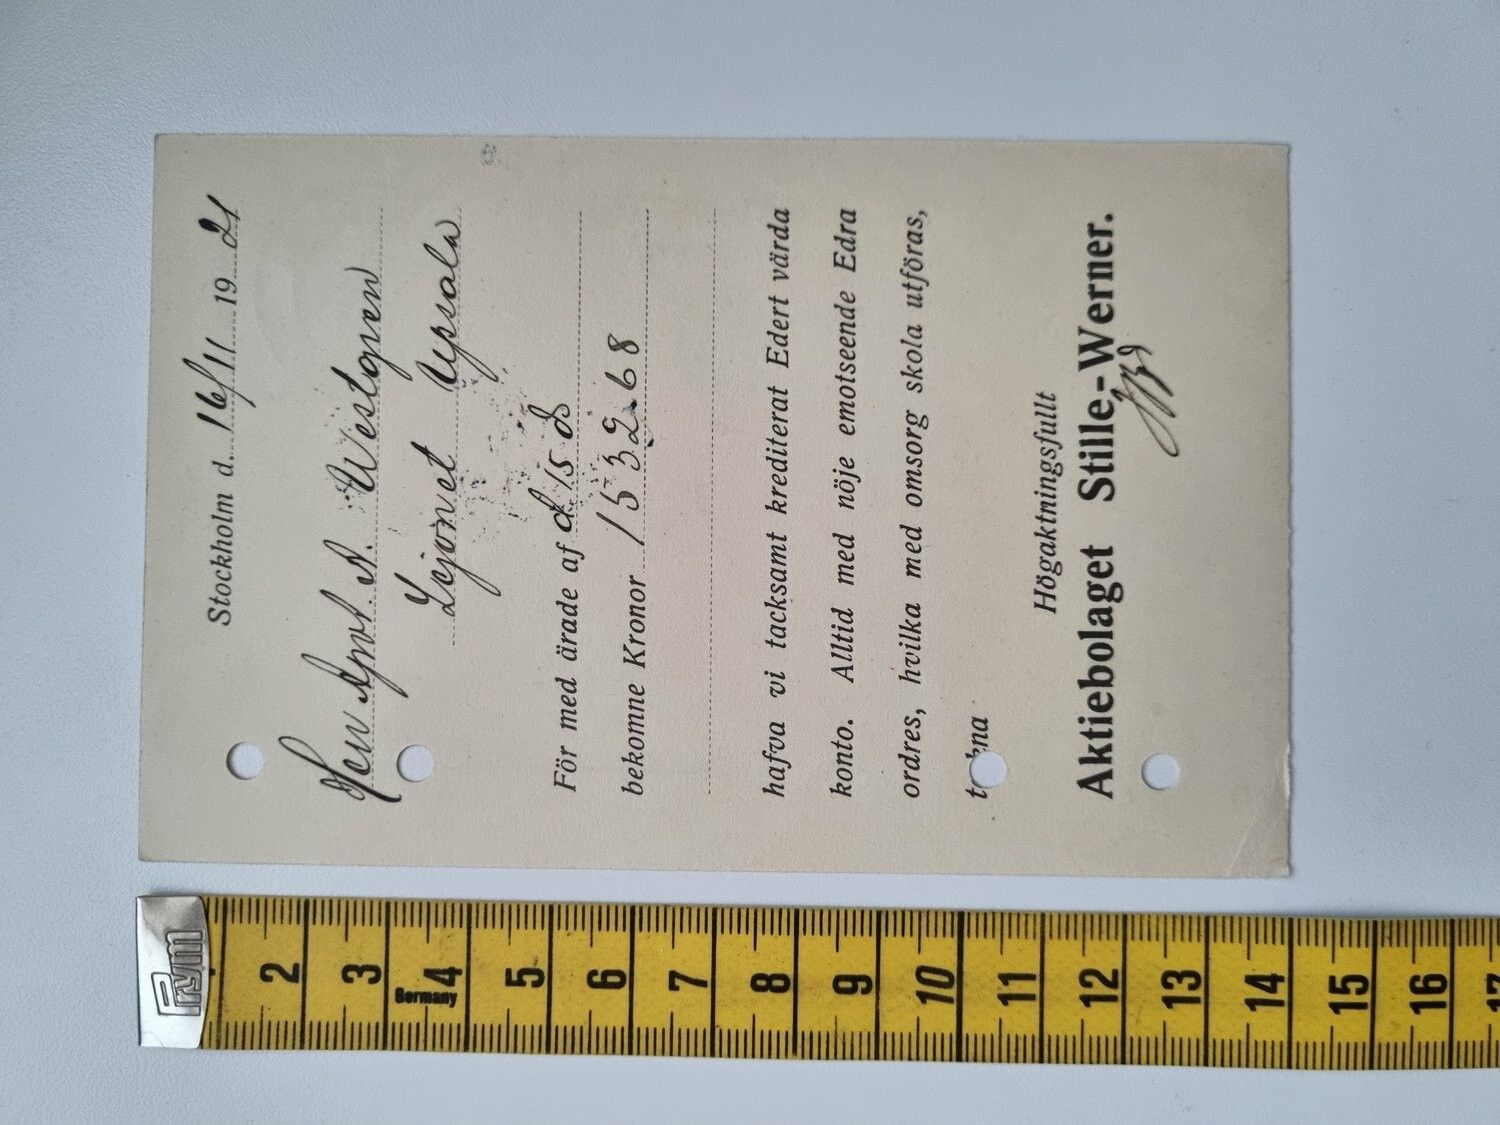 Stockholm d. 16/11 1921
Herr Apot. A. Westgren
Lejonet Upsala
För med ärade af d 15 ds
bekomne Kronor 1532.68
hafva vi tacksamt krediterat Edert värda
konto. Alltid med nöje emotseende Edra
ordres, hvilka med omsorg skola utföras,
te kna
Högaktningsfullt
Aktiebolaget Stille-Werner.
Prym
2 3 4 5 6 7 8 9 10 11 12 13 14 15 16 17
Germany